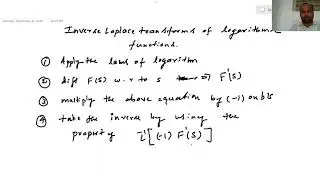 Inverse Laplace transforms of logarithmic
functions.
① Apply the laws of logarithm
② diff F(s) w.r to s ⇒ F'(s)
③ multiply the above equation by (-1) on b's
④ take the inverse by using the
property L⁻¹[(-1) F'(s)]